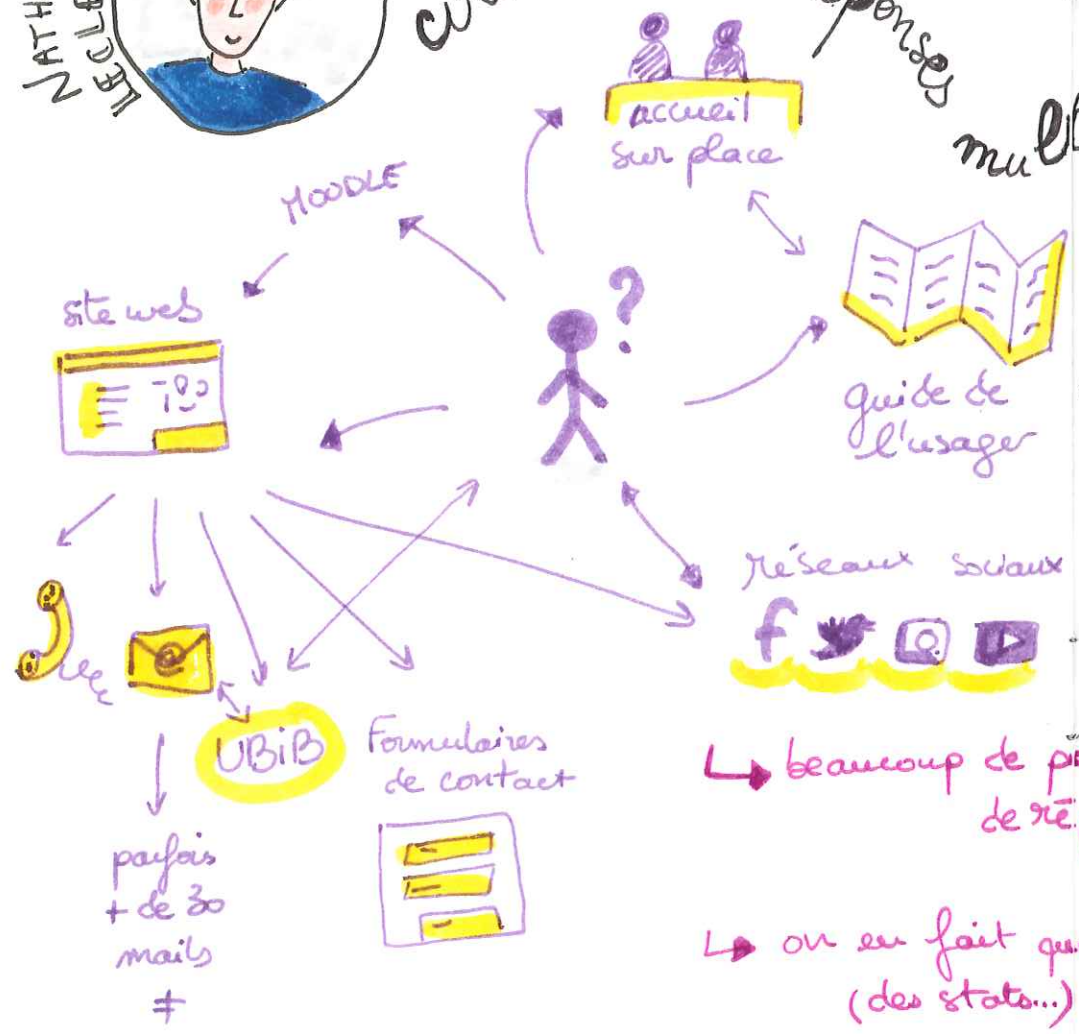 NATH
LECLE
accueil
sur place
MOODLE
?
site web
guide de
l'usager
réseaux sociaux
@
UBiB
Formulaires
de contact
parfois
+ de 30
mails
≠
↳ beaucoup de
de
↳ on en fait
(des stats...)